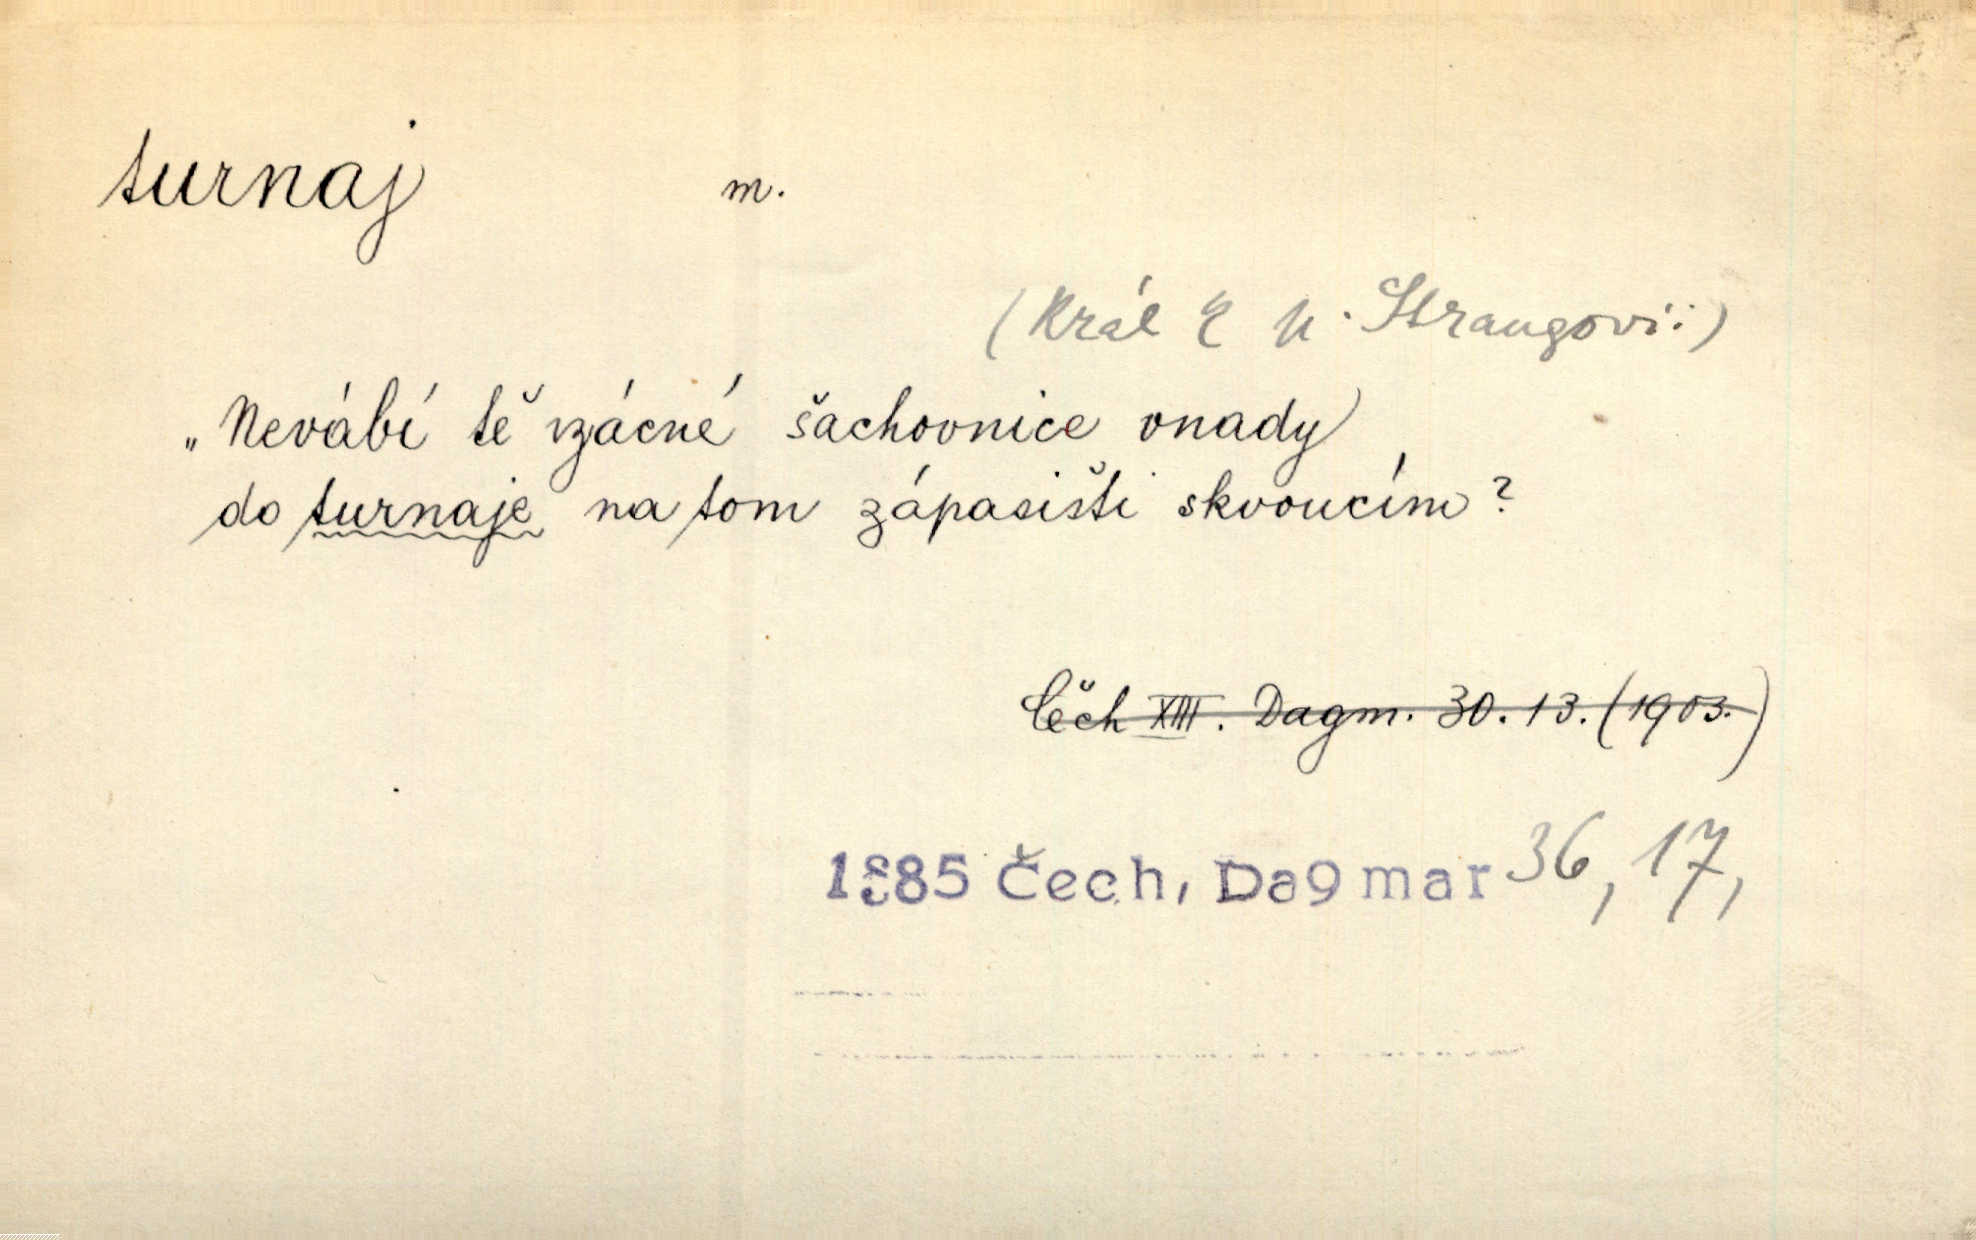 turnaj m.
(Král k Strangovi:)
„Nevábí tě vzácné šachovnice vnady
do turnaje na tom zápasišti skvoucím?
Čech XIII. Dagm. 30. 13. (1903.)
1885 Čech, Dagmar 36, 17,